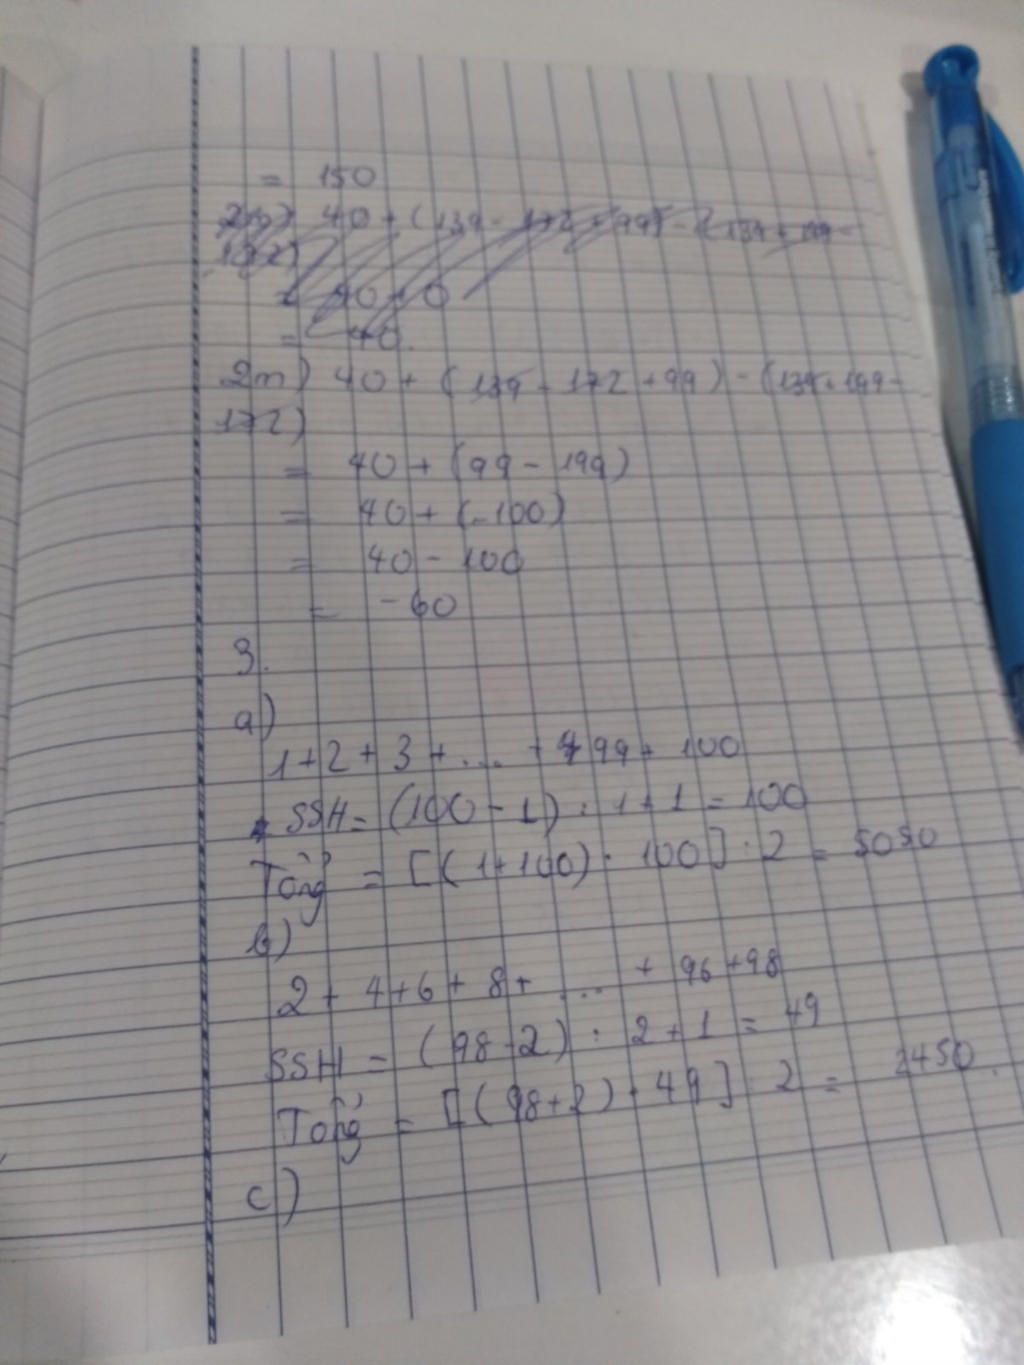 = 150
40 + (139 - 172 + 99) - (139 + 199 -
172)
= 40 + 0
= 40.
2m) 40 + (139 - 172 + 99) - (139 + 199 -
172)
= 40 + (99 - 199)
= 40 + (-100)
= 40 - 100
= -60
3.
a)
1 + 2 + 3 + .... + 99 + 100
SSH = (100 - 1) : 1 + 1 = 100
Tổng = [(1 + 100) . 100] : 2 = 5050
b)
2 + 4 + 6 + 8 + .... + 96 + 98
SSH = (98 - 2) : 2 + 1 = 49
Tổng = [(98 + 2) . 49] : 2 = 2450.
c)